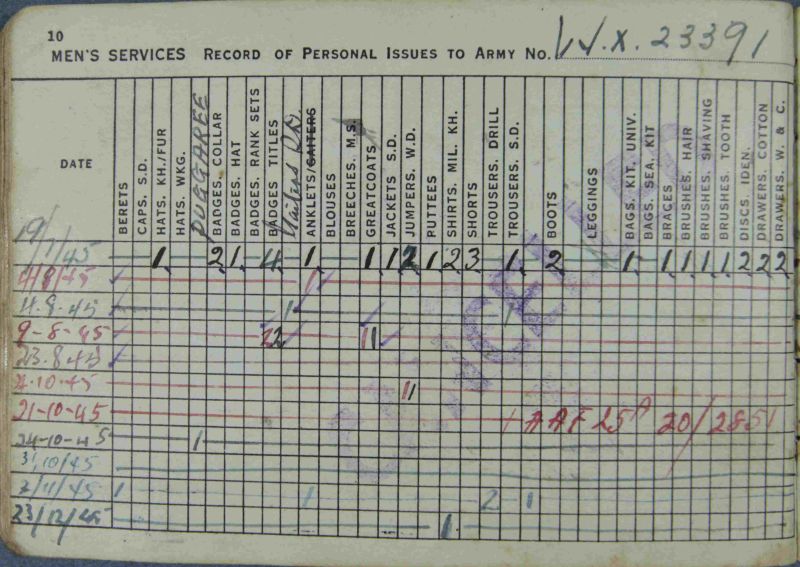 10
MEN'S SERVICES RECORD OF PERSONAL ISSUES TO ARMY NO. W.X. 23391
DATE
BERETS
CAPS. S.D.
HATS. KH./FUR
HATS. WKG.
PUGGAREE
BADGES. COLLAR
BADGES. HAT
BADGES. RANK SETS
BADGES TITLES
Gaiters
ANKLETS/GAITERS
BLOUSES
BREECHES. M.S.
GREATCOATS
JACKETS S.D.
JUMPERS. W.D.
PUTTEES
SHIRTS. MIL. KH.
SHORTS
TROUSERS. DRILL
TROUSERS. S.D.
BOOTS
LEGGINGS
BAGS. KIT. UNIV.
BAGS. SEA. KIT
BRACES
BRUSHES. HAIR
BRUSHES. SHAVING
BRUSHES. TOOTH
DISCS. IDEN.
DRAWERS. COTTON
DRAWERS. W. & C.
19/7/45 1 2 1 4 1 1 1 2 1 2 3 1 2 1 1 1 1 1 2 2 2
4/8/45 1
4.8.45 1 1
9-8-45 22 11
23.8.45
2.10.45 11
21-10-45 AAF 25A 20/2851
24-10-45 1
31/10/45
2/11/45 1 1 2 1
23/12/45 1